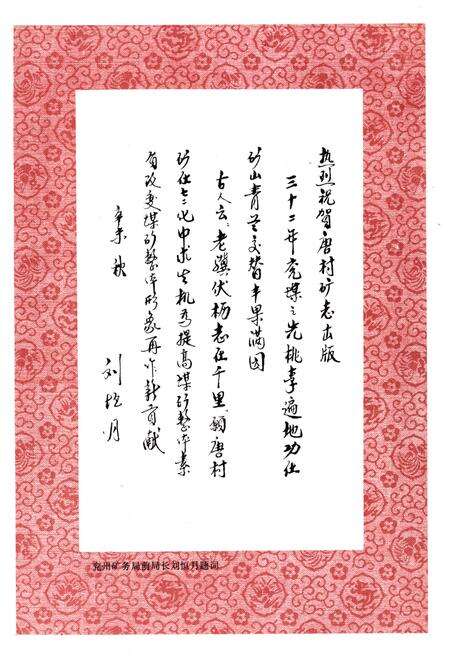 热烈祝贺唐村矿志出版
三十二年兖煤之先桃李遍地功在
矿山青兰交替丰果满园
古人云:老骥伏枥志在千里,愿唐村
矿在七二〇中求生机为提高煤矿整体素
质改变煤矿整体形象再作新贡献
辛未秋
刘恒月
兖州矿务局前局长刘恒月题词